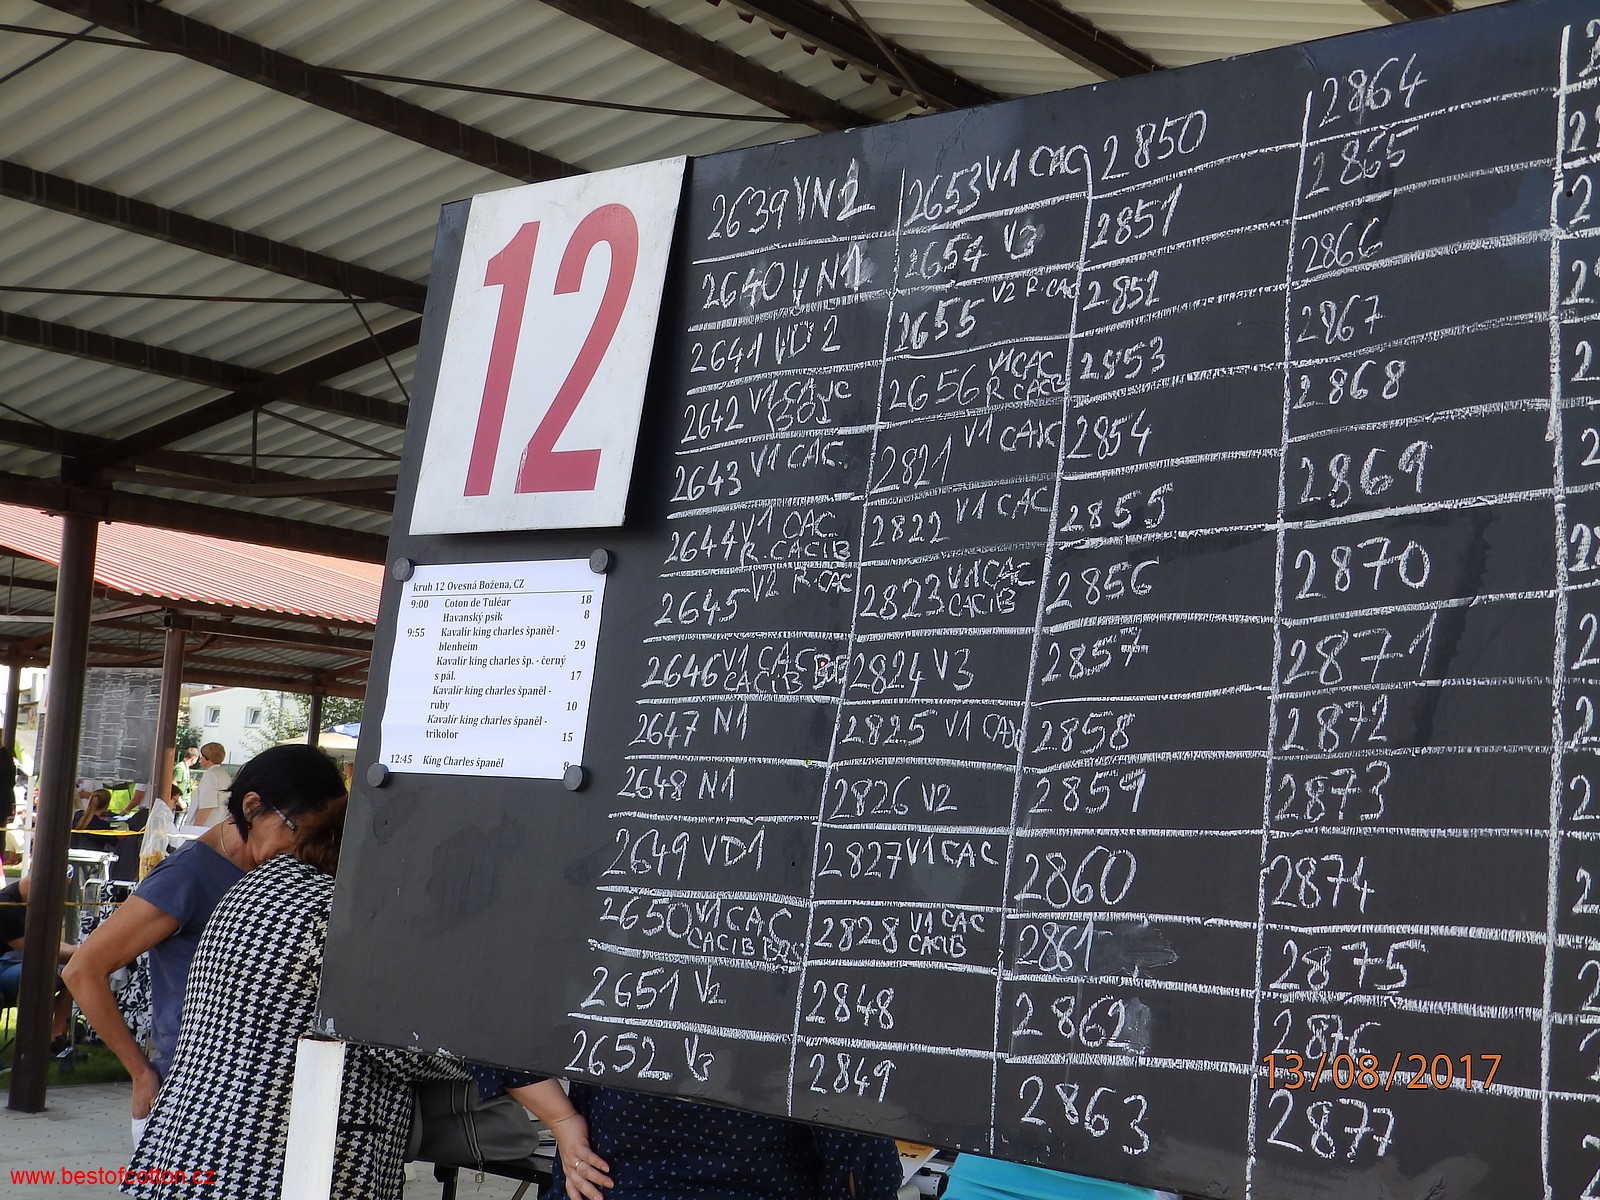 12
kruh 12 Ovesná Božena, CZ
9:00 Coton de Tuléar 18
Havanský psík 8
9:55 Kavalír king charles španěl -
blenheim 29
Kavalír king charles šp. - černý
s pál. 17
Kavalír king charles španěl -
ruby 10
Kavalír king charles španěl -
trikolor 15
12:45 King Charles španěl 8
2639 VN2
2640 VN1
2641 VD2
2642 V1 CAJC
BOJ
2643 V1 CAC
2644 V1 CAC
R.CACIB
2645 V2 R.CAC
2646 V1 CAC
CACIB BOB
2647 N1
2648 N1
2649 VD1
2650 V1 CAC
CACIB BOS
2651 V2
2652 V3
2653 V1 CAC
2654 V3
2655 V2 R.CAC
2656 V1 CAC
R.CACIB
2821 V1 CAJC
2822 V1 CAC
2823 V1 CAC
CACIB
2824 V3
2825 V1 CAJC
2826 V2
2827 V1 CAC
2828 V1 CAC
CACIB
2848
2849
2850
2851
2852
2853
2854
2855
2856
2857
2858
2859
2860
2861
2862
2863
2864
2865
2866
2867
2868
2869
2870
2871
2872
2873
2874
2875
2876
2877
13/08/2017
www.bestofcotton.cz